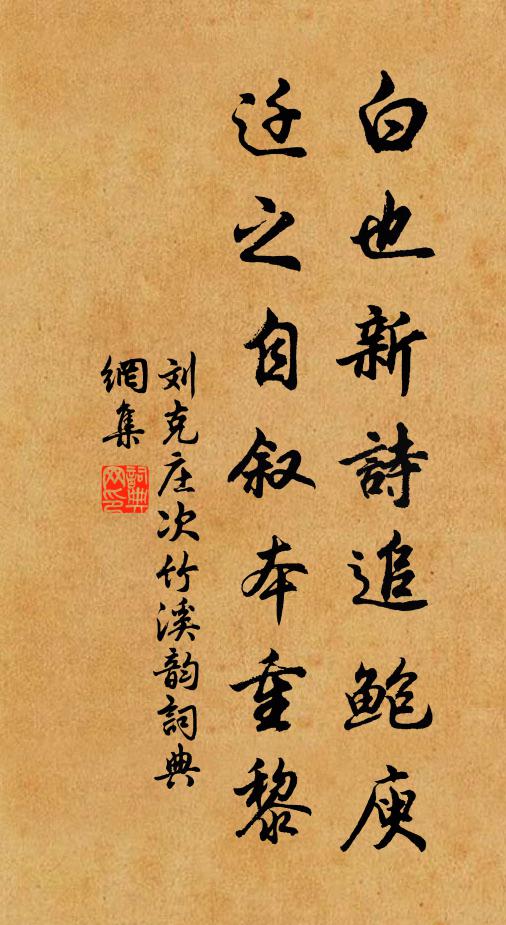 白也新詩追鮑庾
迁之自叙本重黎
刘克庄次竹溪韵詞典
網集
詞典网印